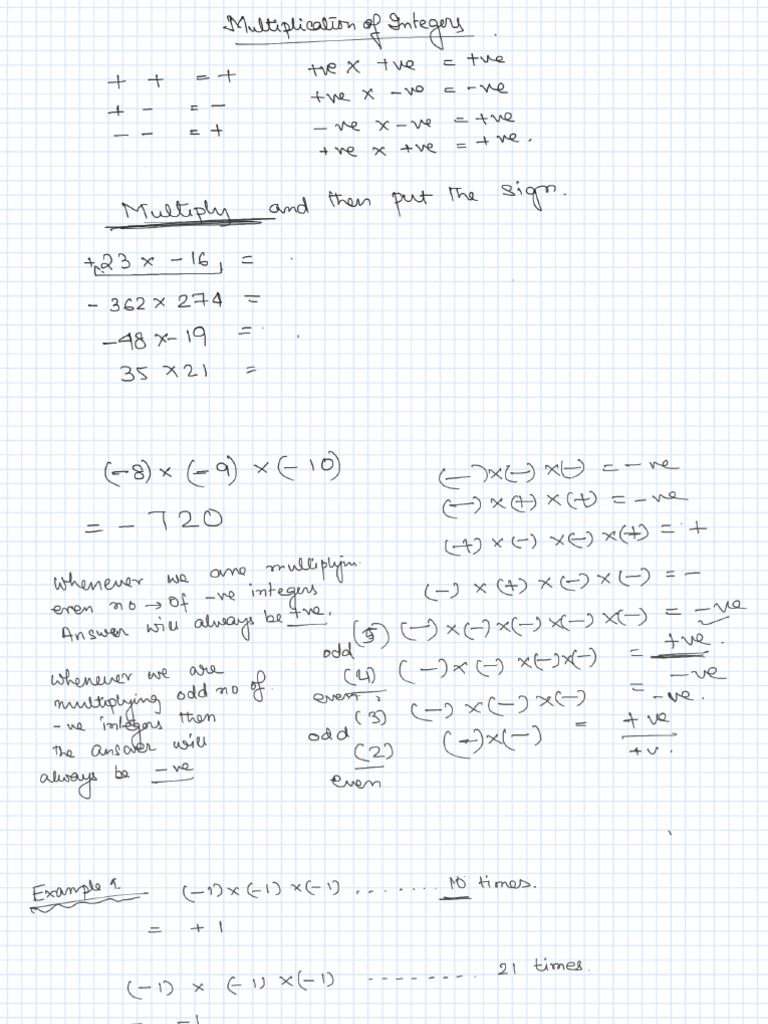 Multiplication of Integers
+ + = +
+ - = -
- - = +
+ve × +ve = +ve
+ve × -ve = -ve
-ve × -ve = +ve
+ve × +ve = +ve.
Multiply and then put the sign.
+23 × -16 =
- 362 × 274 =
-48 × -19 =
35 × 21 =
(-8) × (-9) × (-10)
= - 720
Whenever we are multiplyin
even no → of -ve integers
Answer will always be +ve.
Whenever we are
multiplying odd no of
-ve integers then
the answer will
always be -ve
(-) × (-) × (-) = -ve
(-) × (+) × (+) = -ve
(+) × (-) × (-) × (+) = +
(-) × (+) × (-) × (-) = -
(5) (-) × (-) × (-) × (-) × (-) = -ve
odd
(4) (-) × (-) × (-) × (-) = +ve.
even
(3) (-) × (-) × (-) = -ve
-ve.
odd
(2) (-) × (-) = +ve
+v.
even
Example 1
(-1) × (-1) × (-1) ....... 10 times.
= +1
(-1) × (-1) × (-1) -------- 21 times.
-1